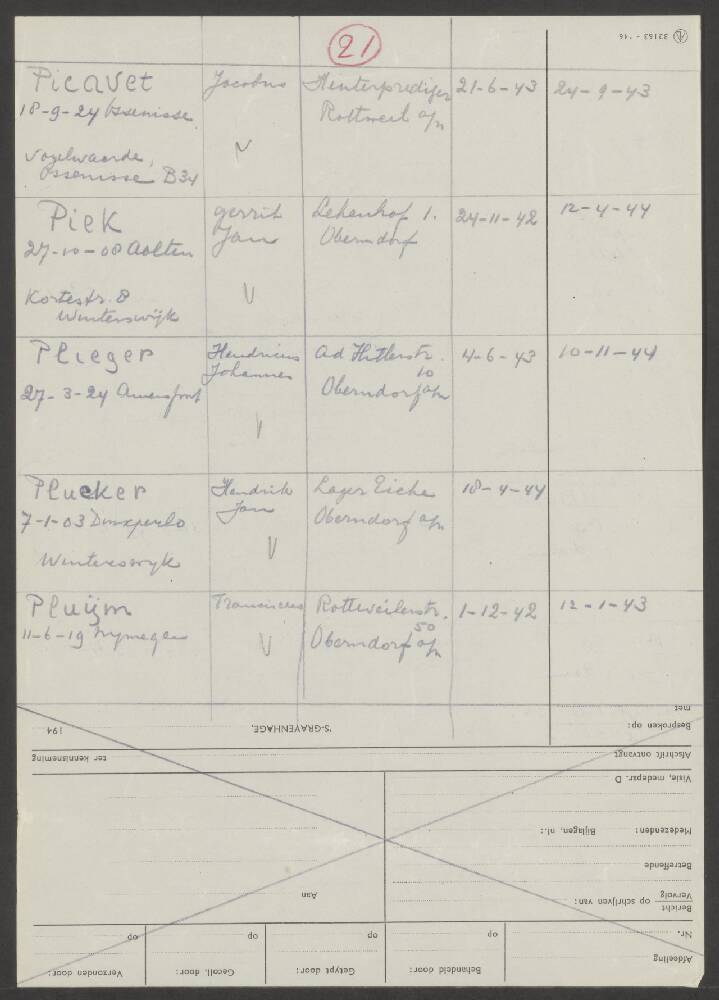 21
33163 - '46
Picavet Jacobus Hinterprediger 21-6-43 24-9-43
18-9-24 Ossenisse Rottweil a/n
Vogelwaarde, V
Ossenisse B34
Piek Gerrit Lehenhof 1. 24-11-42 12-4-44
27-10-08 Aalten Jan Oberndorf
Kortestr. 8 V
Winterswijk
Plieger Hendricus Ad Hitlerstr. 4-6-43 10-11-44
Johannes 10
27-3-24 Amersfoort Oberndorf a/n
V
Plucker Hendrik Lager Eiche 18-4-44
7-1-03 Dinxperlo Jan Oberndorf a/n
Winterswyk V
Pluijm Franciscus Rottweilerstr. 1-12-42 12-1-43
50
11-6-19 Nymegen V Oberndorf a/n
Afdeeling
Nr.
Behandeld door: op
Getypt door: op
Gecoll. door: op
Verzonden door: op
Bericht
Vervolg op schrijven van:
Betreffende
Medezenden: Bijlagen, nl.:
Aan
Visie, medepar. D
Afschrift ontvangt ter kennisneming
Besproken op:
met
'S-GRAVENHAGE, 194